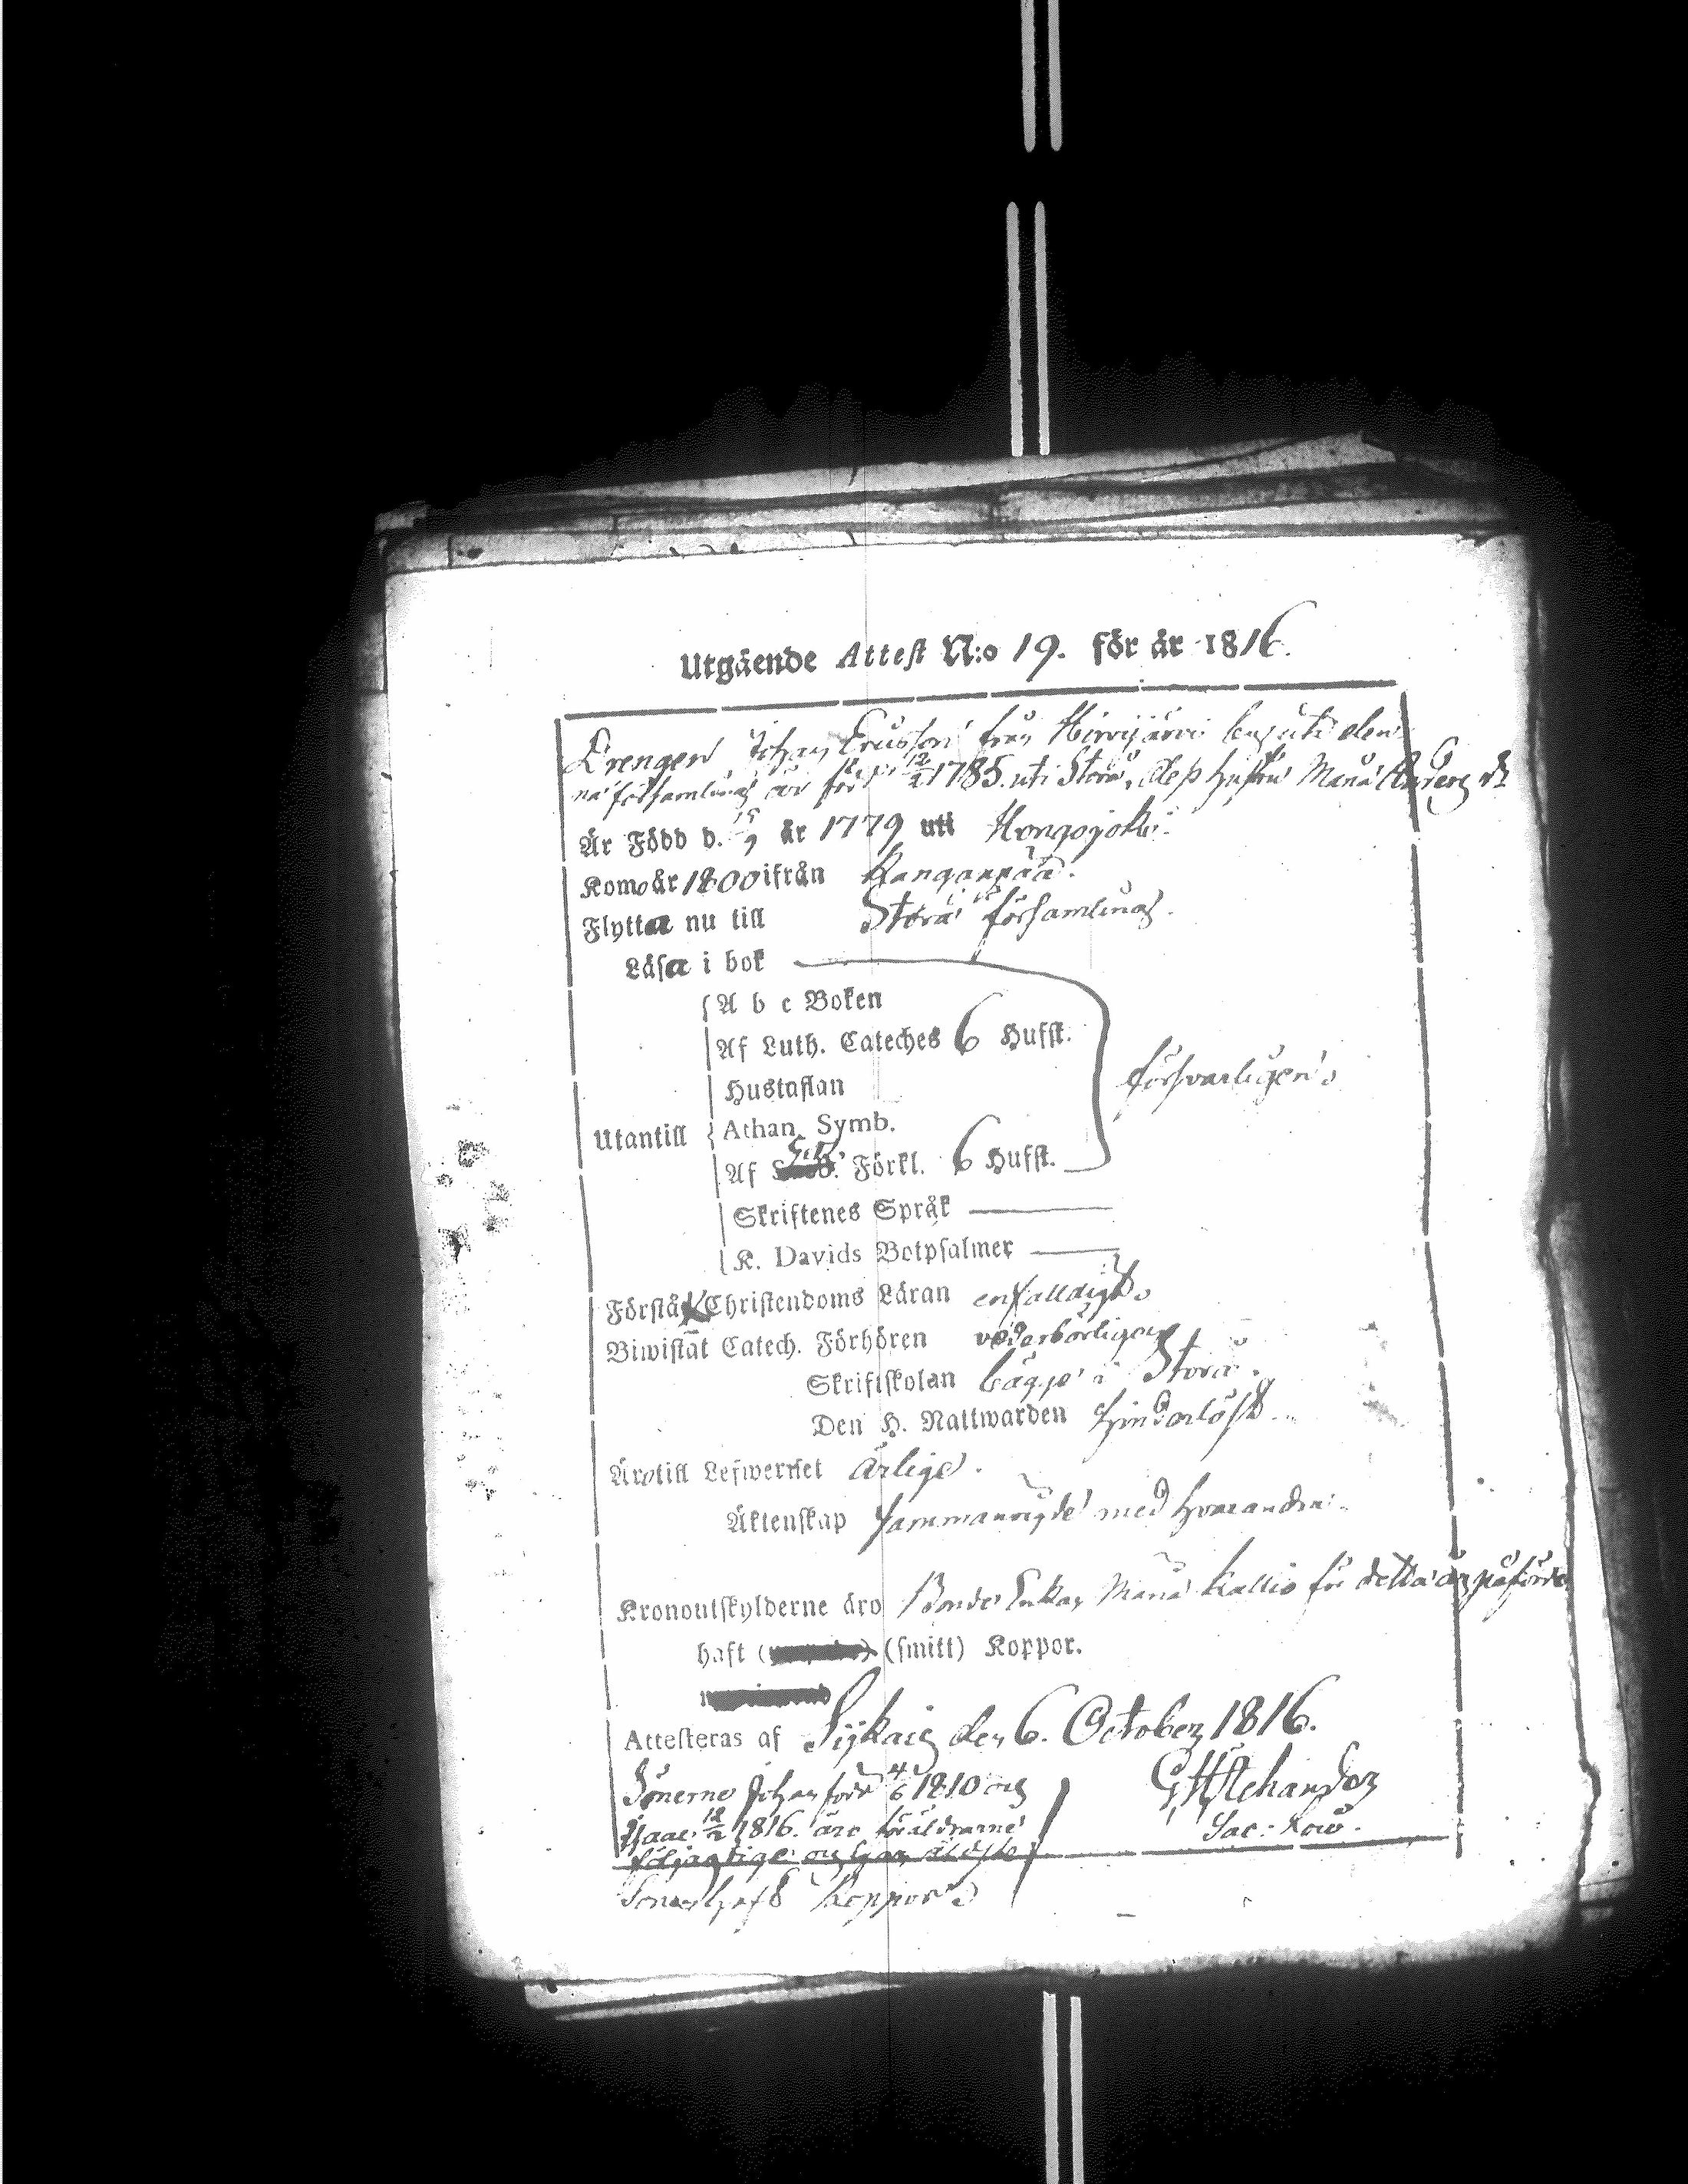 Utgående Attest N:o 19. för år 1816.
Drengen Johan Ericsson från Hirvijärvi by uti den
na församling är född 12/2 1785. uti Storå, dess hustru Maria Anders dr
Är Född d. 15/9 år 1779 uti Hongojoki.
Komo år 1800 ifrån Kangarpää.
Flytta nu till Storå församling.
Läsa i bok
A b c Boken
Af Luth. Cateches 6 Hufst.
Hustaflan
försvarligen.
Utantill
Athan. Symb.
Af Förkl. 6 Hufst.
Skriftenes Språk
K. Davids Botpsalmer
Förstå Christendoms Läran enfaldigt.
Biwistat Catech. Förhören vederbörligen
Skriftskolan bägge i Storå.
Den H. Nattwarden hinderlöst.
Äro till Lefwernet ärlige.
Äktenskap sammanvigde med hvarandra.
Kronoutskylderne äro Bonde Enkan Maria Kallio för detta år påförde
haft (smitt) Koppor.
Attesteras af Sijkais den 6. October 1816.
Sönerne Johan född 4/6 1810 och
Isaac 12/2 1816. äro föräldrarne
följagtige och har äldste
Sonen haft Koppor.
Sac: